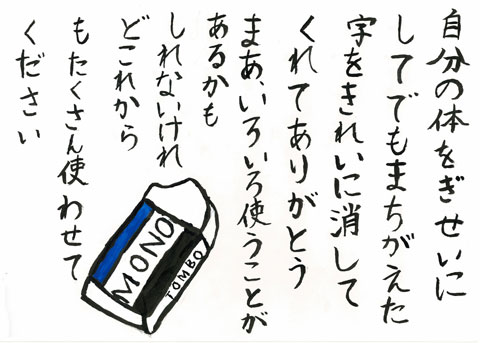 自分の体をぎせいに
してでもまちがえた
字をきれいに消して
くれてありがとう
まあ、いろいろ使うことが
あるかも
しれないけれ
どこれから
もたくさん使わせて
ください
MONO
TOMBO